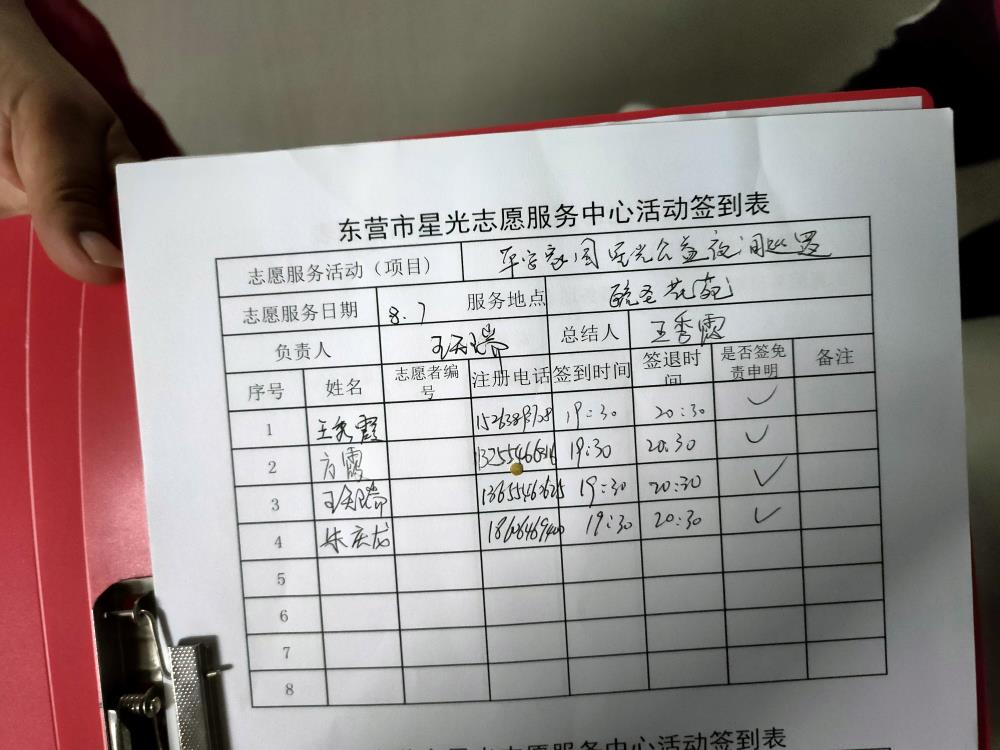 东营市星光志愿服务中心活动签到表
志愿服务活动（项目） 平安家园星光公益夜间巡逻
志愿服务日期 8.7 服务地点 毓圣花苑
负责人 总结人 王秀霞
序号 姓名 志愿者编号 注册电话 签到时间 签退时间 是否签免责申明 备注
1 王秀霞 19:30 20:30 ✓
2 方霞 19:30 20:30 ✓
3 19:30 20:30 ✓
4 朱庆龙 19:30 20:30 ✓
5
6
7
8
东营市星光志愿服务中心活动签到表